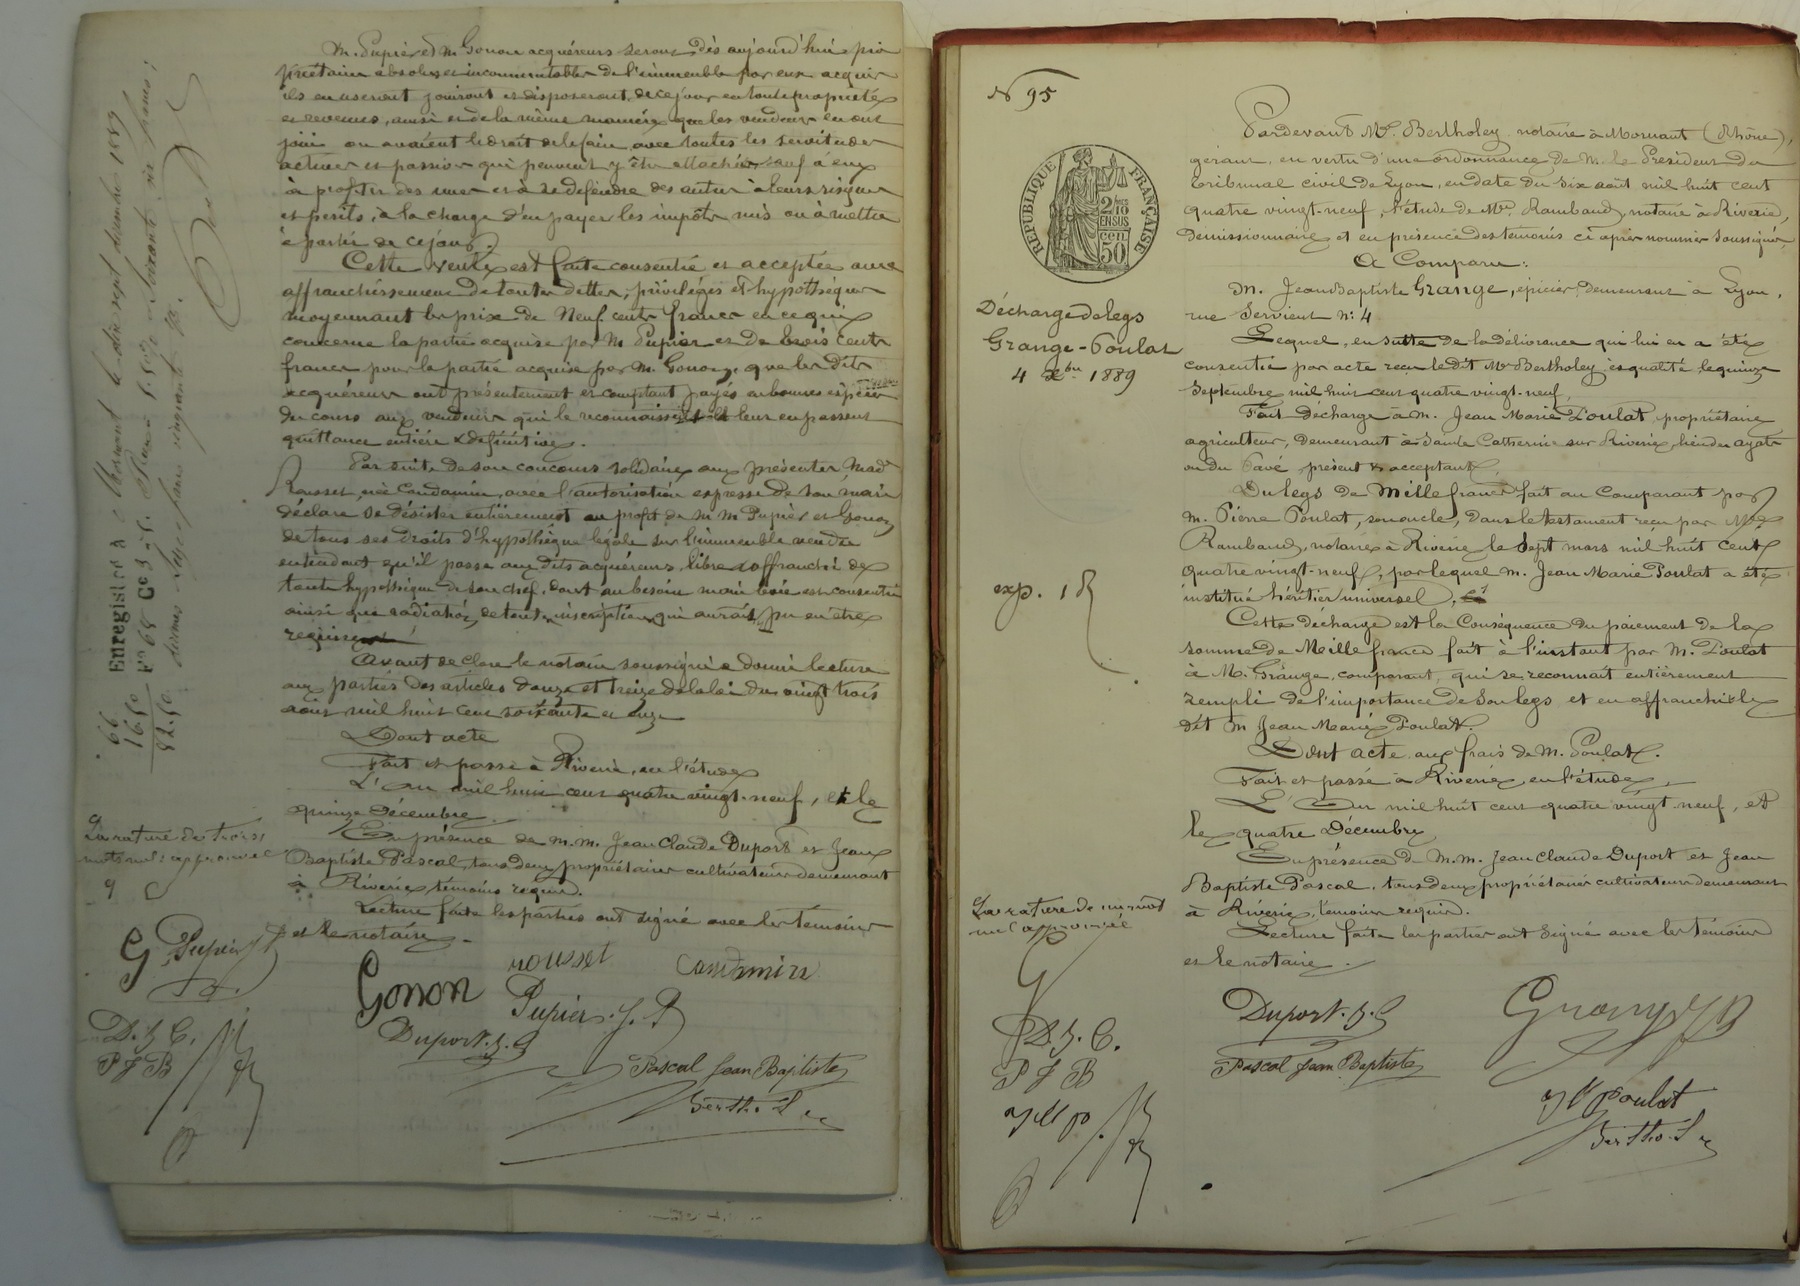 M. Pupier et M. Gonon acquéreurs seront dès aujourd'hui pro
priétaires absolus et incommutables de l'immeuble par eux acquis
ils en useront jouiront et disposeront de ce jour en toute propriété
et revenus, ainsi et de la même manière que les vendeurs en ont
joui ou avaient le droit de le faire avec toutes les servitudes
actives et passives qui peuvent y être attachées sauf à eux
à profiter des unes et à se défendre des autres à leurs risques
et périls, à la charge d'en payer les impôts mis ou à mettre
à partir de ce jour.
Cette vente est faite consentie et acceptée avec
affranchissement de toutes dettes, privilèges et hypothèques
moyennant le prix de Neuf cents francs en ce qui
concerne la partie acquise par M. Pupier et de trois cents
francs pour la partie acquise par M. Gonon, que les dits
acquéreurs ont présentement et comptant payés en bonnes espèces
du cours aux vendeurs qui le reconnaissent et leur en passent
quittance entière & définitive.
Par suite de son concours solidaire aux présentes Made
Rousset, née Candamin, avec l'autorisation expresse de son mari
déclare se désister entièrement au profit de M M Pupier et Gonon
de tous ses droits d'hypothèque légale sur l'immeuble vendu
entendant qu'il passe aux dits acquéreurs, libre & affranchi de
toute hypothèque de son chef, dont au besoin main levée est consentie
ainsi que radiation de toute inscription qui aurait pu en être
requise
Avant de clore le notaire soussigné a donné lecture
aux parties des articles douze et treize de la loi du vingt trois
août mil huit cent soixante et onze
Dont acte
Fait et passé à Riverie, en l'étude
L'an mil huit cent quatre vingt-neuf, et le
quinze Décembre.
En présence de M.M. Jean Claude Duport et Jean
Baptiste Pascal, tous deux propriétaires cultivateurs demeurant
à Riverie témoins requis.
Lecture faite les parties ont signé avec les témoins
et le notaire.
La rature de trois
mots nuls approuvée
G
Pupier
Gonon
rousset
Candamin
Pupier. J. P
Duport. J. C
Pascal Jean Baptiste
Bertho. L
D. J. C.
P J B
Enregistré à Mornant le dix sept décembre 1889
Fo 68 Co
66
16.50
82.50
No 95
RÉPUBLIQUE FRANÇAISE
2/10
EN SUS
50 cen
Pardevant Me. Bertholey notaire à Mornant (Rhône),
gérant, en vertu d'une ordonnance de M. le Président du
tribunal civil de Lyon, en date du six août mil huit cent
quatre vingt-neuf, l'étude de Me. Rambaud, notaire à Riverie,
démissionnaire et en présence des témoins ci après nommés soussignés
A Comparu:
M. Jean Baptiste Grange, épicier, demeurant à Lyon,
rue Servient No. 4
Lequel, en suite de la délivrance qui lui en a été
consentie par acte reçu le dit Me Bertholey ès qualité le quinze
Septembre mil huit cent quatre vingt-neuf,
Fait décharge à M. Jean Marie Poulat, propriétaire
agriculteur, demeurant à Sainte Catherine sur Riverie, lieu des ayats
ou du Pavé, présent & acceptant,
Du legs de Mille francs fait au comparant par
M. Pierre Poulat, son oncle, dans le testament reçu par Me
Rambaud, notaire à Riverie, le Sept mars mil huit cent
quatre vingt-neuf, par lequel M. Jean Marie Poulat a été
institué héritier universel.
Cette décharge est la conséquence du paiement de la
somme de Meille francs fait à l'instant par M. Poulat
à M. Grange, comparant, qui se reconnaît entièrement
rempli de l'importance de son legs et en affranchit le
dit M Jean Marie Poulat.
Dont acte, aux frais de M. Poulat.
Fait et passé à Riverie, en l'étude,
L'An mil huit cent quatre vingt neuf, et
le quatre Décembre
En présence de M.M. Jean Claude Duport et Jean
Baptiste Pascal, tous deux propriétaires cultivateurs demeurant
à Riverie, témoins requis.
Lecture faite les parties ont signé avec les témoins
et le notaire.
Décharge de legs
Grange-Poulat
4 Xbre 1889
exp. 1 R
La rature de un mot
nul approuvée
D. J. C.
P J B
Duport. J. C
Grange J B
Pascal Jean Baptiste
J M Poulat
Bertho. L